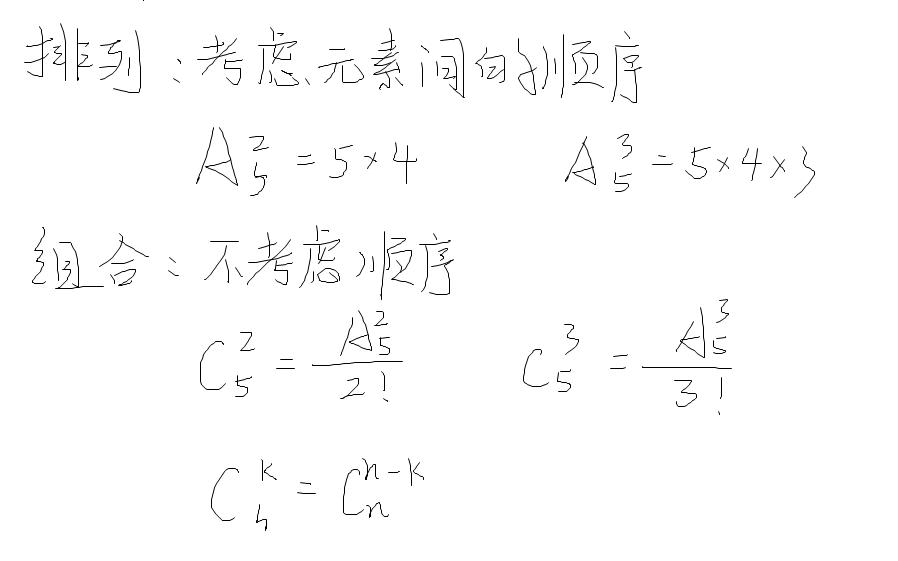 排列：考虑元素间的顺序
A₅² = 5×4  A₅³ = 5×4×3
组合：不考虑顺序
C₅² = A₅²/2!  C₅³ = A₅³/3!
Cₙᵏ = Cₙⁿ⁻ᵏ